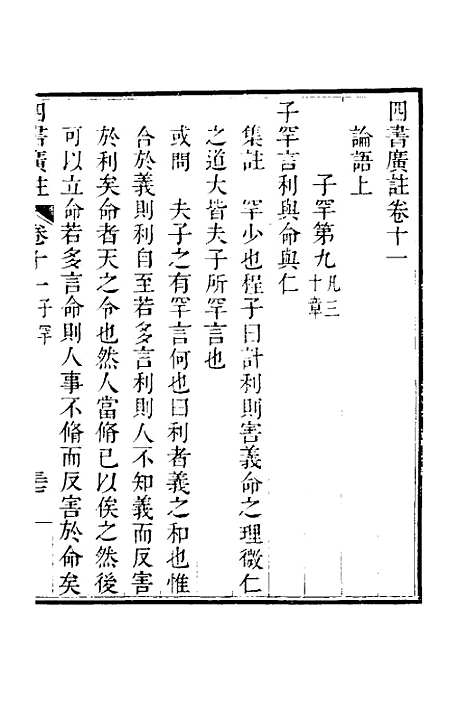 四書廣註卷十一
論語上
子罕第九凡三十章
子罕言利與命與仁
集註　罕少也程子曰計利則害義命之理微仁
之道大皆夫子所罕言也
或問　夫子之有罕言何也曰利者義之和也惟
合於義則利自至若多言利則人不知義而反害
於利矣命者天之令也然人當脩已以俟之然後
可以立命若多言命則人事不脩而反害於命矣
四書廣註　卷十一子罕　一